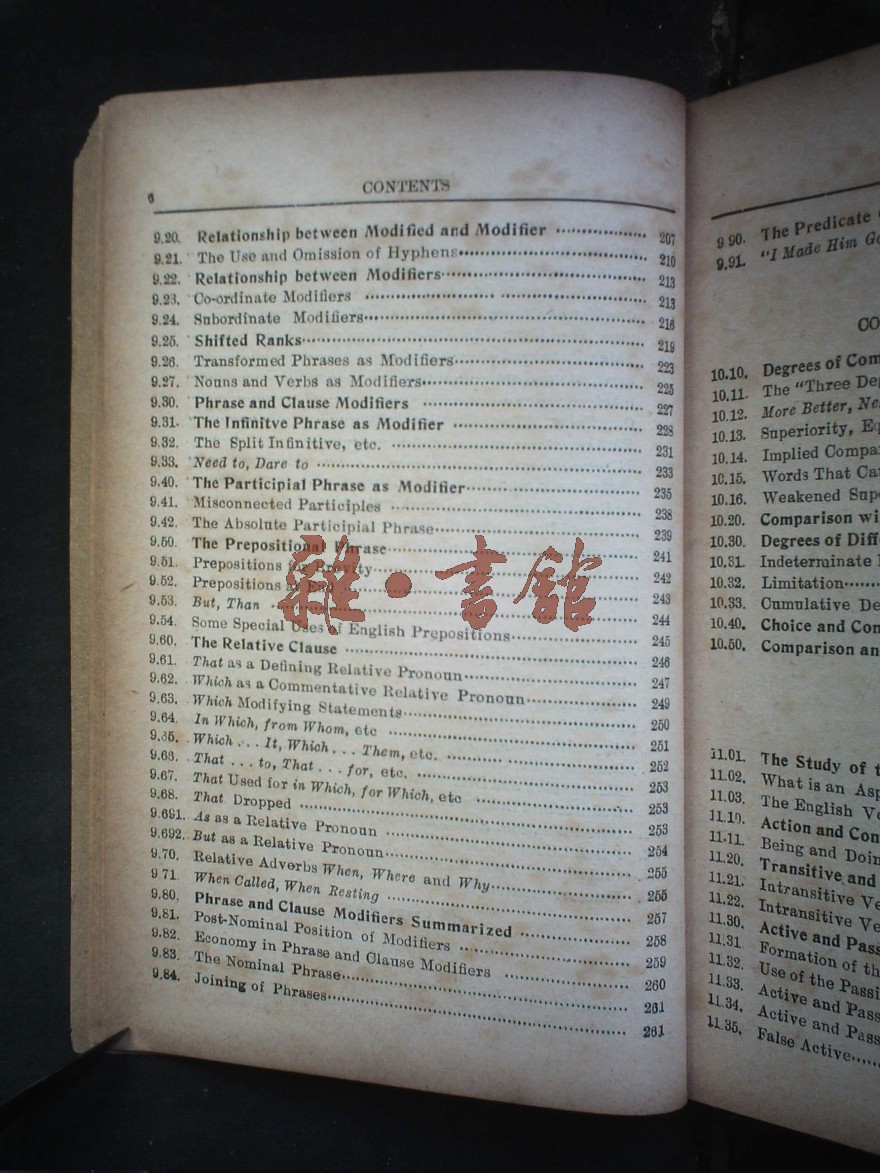 6 CONTENTS
9.20. Relationship between Modified and Modifier 207
9.21. The Use and Omission of Hyphens 210
9.22. Relationship between Modifiers 213
9.23. Co-ordinate Modifiers 213
9.24. Subordinate Modifiers 216
9.25. Shifted Ranks 219
9.26. Transformed Phrases as Modifiers 223
9.27. Nouns and Verbs as Modifiers 225
9.30. Phrase and Clause Modifiers 227
9.31. The Infinitve Phrase as Modifier 228
9.32. The Split Infinitive, etc. 231
9.33. Need to, Dare to 233
9.40. The Participial Phrase as Modifier 235
9.41. Misconnected Participles 238
9.42. The Absolute Participial Phrase 239
9.50. The Prepositional Phrase 241
9.51. Prepositions for Brevity 242
9.52. Prepositions at End 243
9.53. But, Than 244
9.54. Some Special Uses of English Prepositions 245
9.60. The Relative Clause 246
9.61. That as a Defining Relative Pronoun 247
9.62. Which as a Commentative Relative Pronoun 249
9.63. Which Modifying Statements 250
9.64. In Which, from Whom, etc 251
9.65. Which . . . It, Which . . . Them, etc. 252
9.66. That . . . to, That . . . for, etc. 253
9.67. That Used for in Which, for Which, etc 253
9.68. That Dropped 253
9.691. As as a Relative Pronoun 254
9.692. But as a Relative Pronoun 255
9.70. Relative Adverbs When, Where and Why 255
9 71. When Called, When Resting 257
9.80. Phrase and Clause Modifiers Summarized 258
9.81. Post-Nominal Position of Modifiers 259
9.82. Economy in Phrase and Clause Modifiers 260
9.83. The Nominal Phrase 261
9.84. Joining of Phrases 261
雜·書館
9 90. The Predicate
9.91. "I Made Him Go
CO
10.10. Degrees of Com
10.11. The "Three Deg
10.12. More Better, Ne
10.13. Superiority, Eq
10.14. Implied Compa
10.15. Words That Ca
10.16. Weakened Supe
10.20. Comparison wi
10.30. Degrees of Diff
10.31. Indeterminate
10.32. Limitation
10.33. Cumulative De
10.40. Choice and Con
10.50. Comparison an
11.01. The Study of t
11.02. What is an Asp
11.03. The English Ve
11.10. Action and Con
11.11. Being and Doin
11.20. Transitive and
11.21. Intransitive Ve
11.22. Intransitive Ve
11.30. Active and Pass
11.31. Formation of th
11.32. Use of the Passi
11.33. Active and Pass
11.34. Active and Pass
11.35. False Active